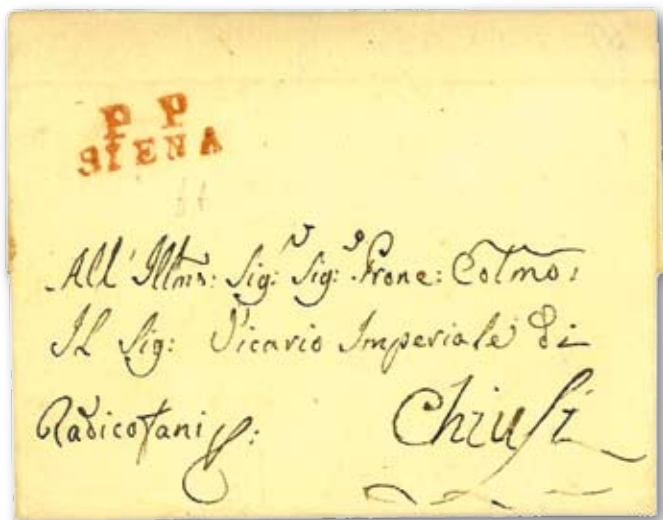 P P
SIENA
All' Illmo: Sig.r Sig.e Prone: Colmo:
Il Sig: Vicario Imperiale di
Radicofani p:
Chiusi